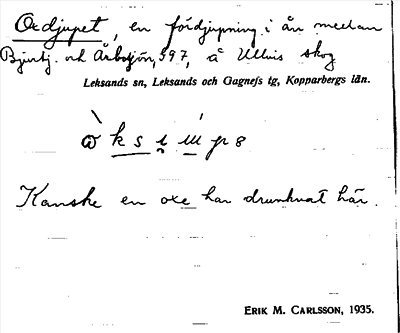 Oxdjupet, en fördjupning i ån mellan
Bjursj. och Årbosjön, 597, å Ullvis skog
Leksands sn, Leksands och Gagnefs tg, Kopparbergs län.
Kanske en oxe har drunknat här.
ERIK M. CARLSSON, 1935.